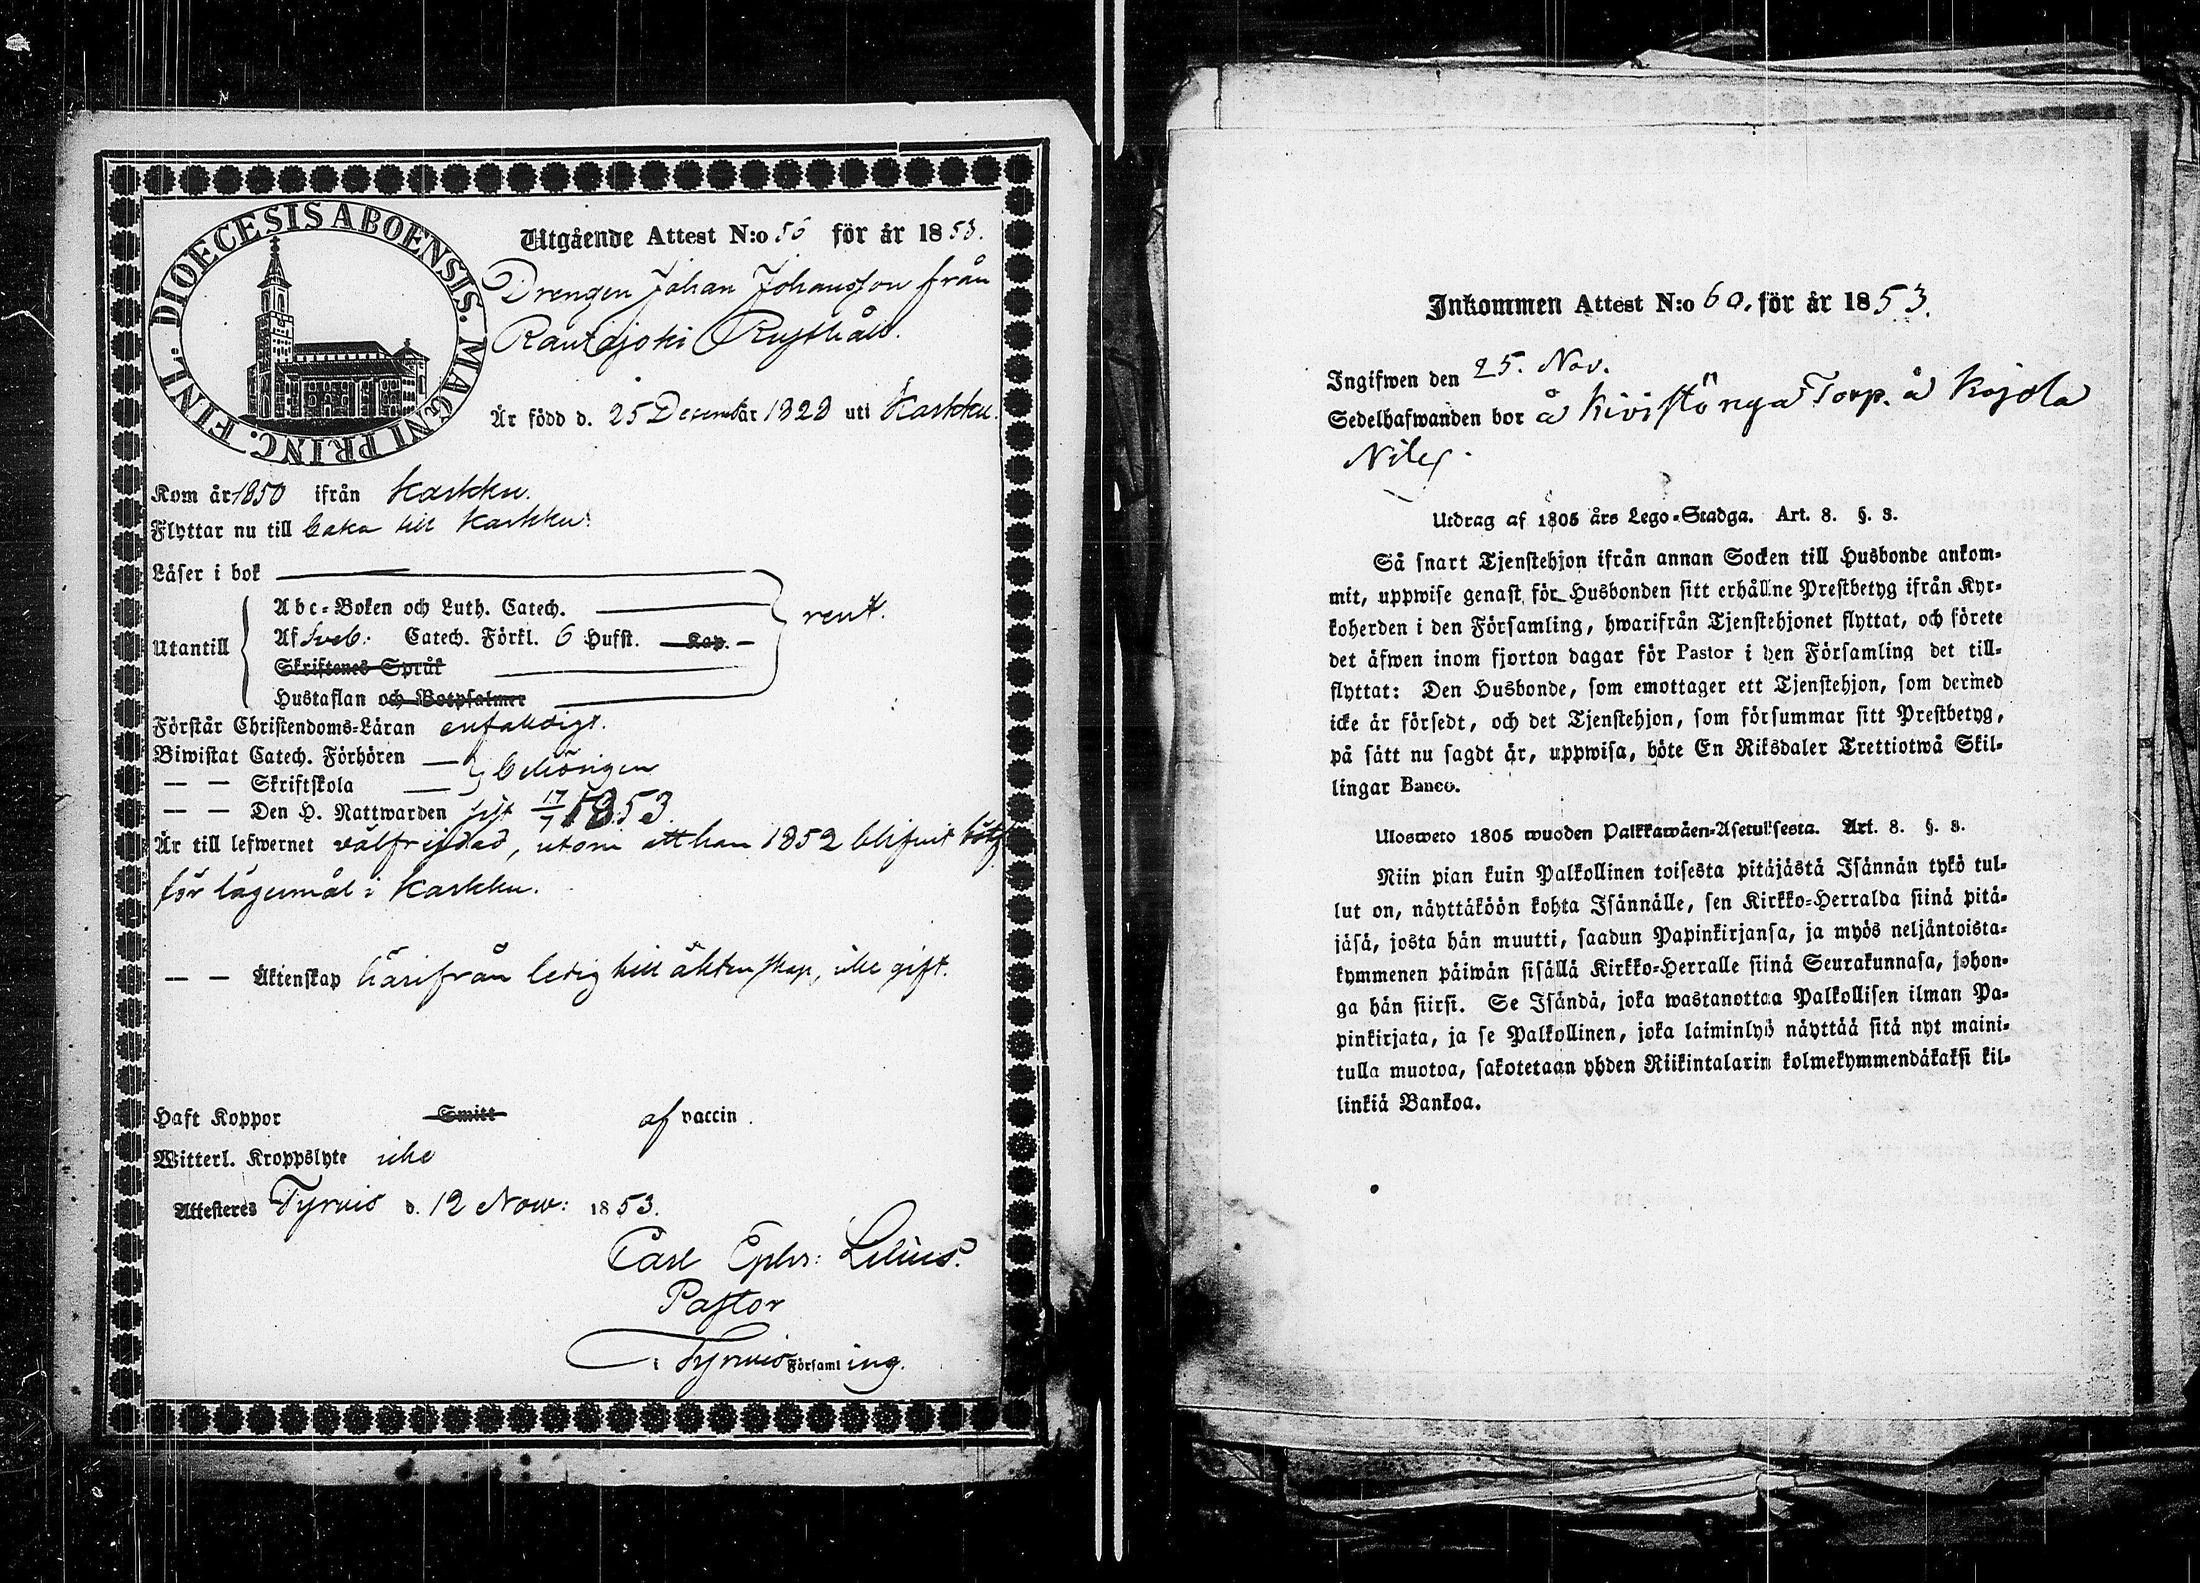 DIOECESIS ABOENSIS. MAGNI PRINC. FINL.
Utgående Attest N:o 56 för år 1853.
Drengen Johan Johansson från
Rautajoki Rusthåll.
Är född d. 25 December 1828 uti Karkku.
Kom år 1850 ifrån Karkku.
Flyttar nu till baka till Karkku.
Läser i bok
Abc-Boken och Luth. Catech.
Utantill Af Sveb: Catech. Förkl. 6 Hufst. Kap. rent.
Skriftenes Språk
Hustaflan och Botpsalmer
Förstår Christendoms-Läran enfaldigt.
Biwistat Catech. Förhören
— — Skriftskola behörigen
— — Den H. Nattwarden sist 17/7 1853.
Är till lefwernet välfrejdad, utom att han 1852 blifvit bötf
för lägersmål i Karkku.
— — Äktenskap härifrån ledig till äktenskap, icke gift.
Haft Koppor Smitt af vaccin.
Witterl. Kroppslyte icke
Attesteres Tyrvis d. 12 Now: 1853.
Carl Ephr: Lilius.
Pastor
i Tyrvis Församling.
Inkommen Attest N:o 60. för år 1853.
Ingifwen den 25. Nov.
Sedelhafwanden bor å Kivistönga Torp. å Kojola
Niles.
Utdrag af 1805 års Lego-Stadga. Art. 8. §. 3.
Så snart Tjenstehjon ifrån annan Socken till Husbonde ankom-
mit, uppwise genast för Husbonden sitt erhållne Prestbetyg ifrån Kyr-
koherden i den Församling, hwarifrån Tjenstehjonet flyttat, och förete
det äfwen inom fjorton dagar för Pastor i den Församling det till-
flyttat: Den Husbonde, som emottager ett Tjenstehjon, som dermed
icke är försedt, och det Tjenstehjon, som försummar sitt Prestbetyg,
på sätt nu sagdt är, uppwisa, böte En Riksdaler Trettiotwå Skil-
lingar Banco.
Ulosweto 1805 wuoden Palkkawäen-Asetuksesta. Art. 8. §. 3.
Niin pian kuin Palkollinen toisesta pitäjästä Isännän tykö tul-
lut on, näyttäköön kohta Isännälle, sen Kirkko-Herralda siinä pitä-
jäsä, josta hän muutti, saadun Papinkirjansa, ja myös neljäntoista-
kymmenen päiwän sisällä Kirkko-Herralle siinä Seurakunnasa, johon-
ga hän siirsi. Se Isändä, joka wastanottaa Palkollisen ilman Pa-
pinkirjata, ja se Palkollinen, joka laiminlyö näyttää sitä nyt maini-
tulla muotoa, sakotetaan yhden Riikintalarin kolmekymmendäkaksi kil-
linkiä Bankoa.